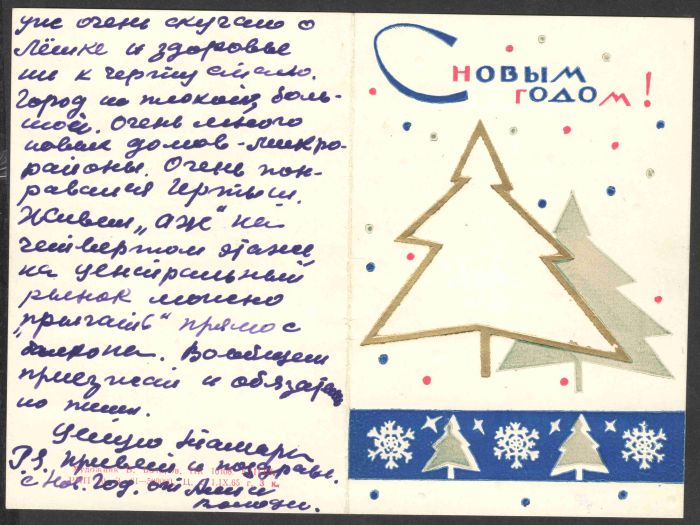 уже очень скучаю о
Лёшке и здоровье
ни к черту стало.
Город не плохой, боль-
шой. Очень много
новых домов - микро-
районы. Очень пон-
равился Иртыш.
Живем "аж" на
четвертом этаже
на центральный
рынок можно
"прыгать" прямо с
балкона. Вообщем
приезжай и обязатель
но пиши.
Целую Тамара
P.S. Привет и поздравл.
с Нов. Год. от Аллы
Володи.
С НОВЫМ
ГОДОМ!